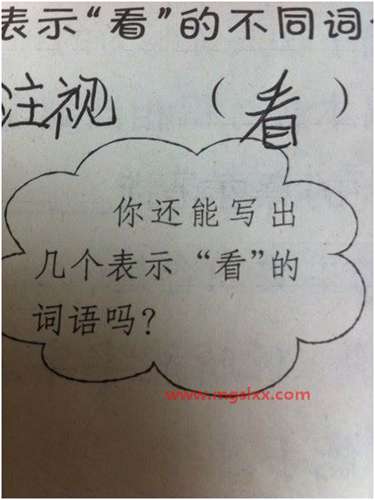 表示“看”的不同词
注视 （看）
你还能写出
几个表示“看”的
词语吗？
www.mgslxx.com